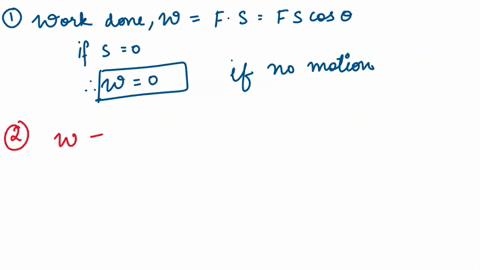 ① Work done, W = F · S = F S cos θ
if s = 0
∴ W = 0 if no motion
② W -